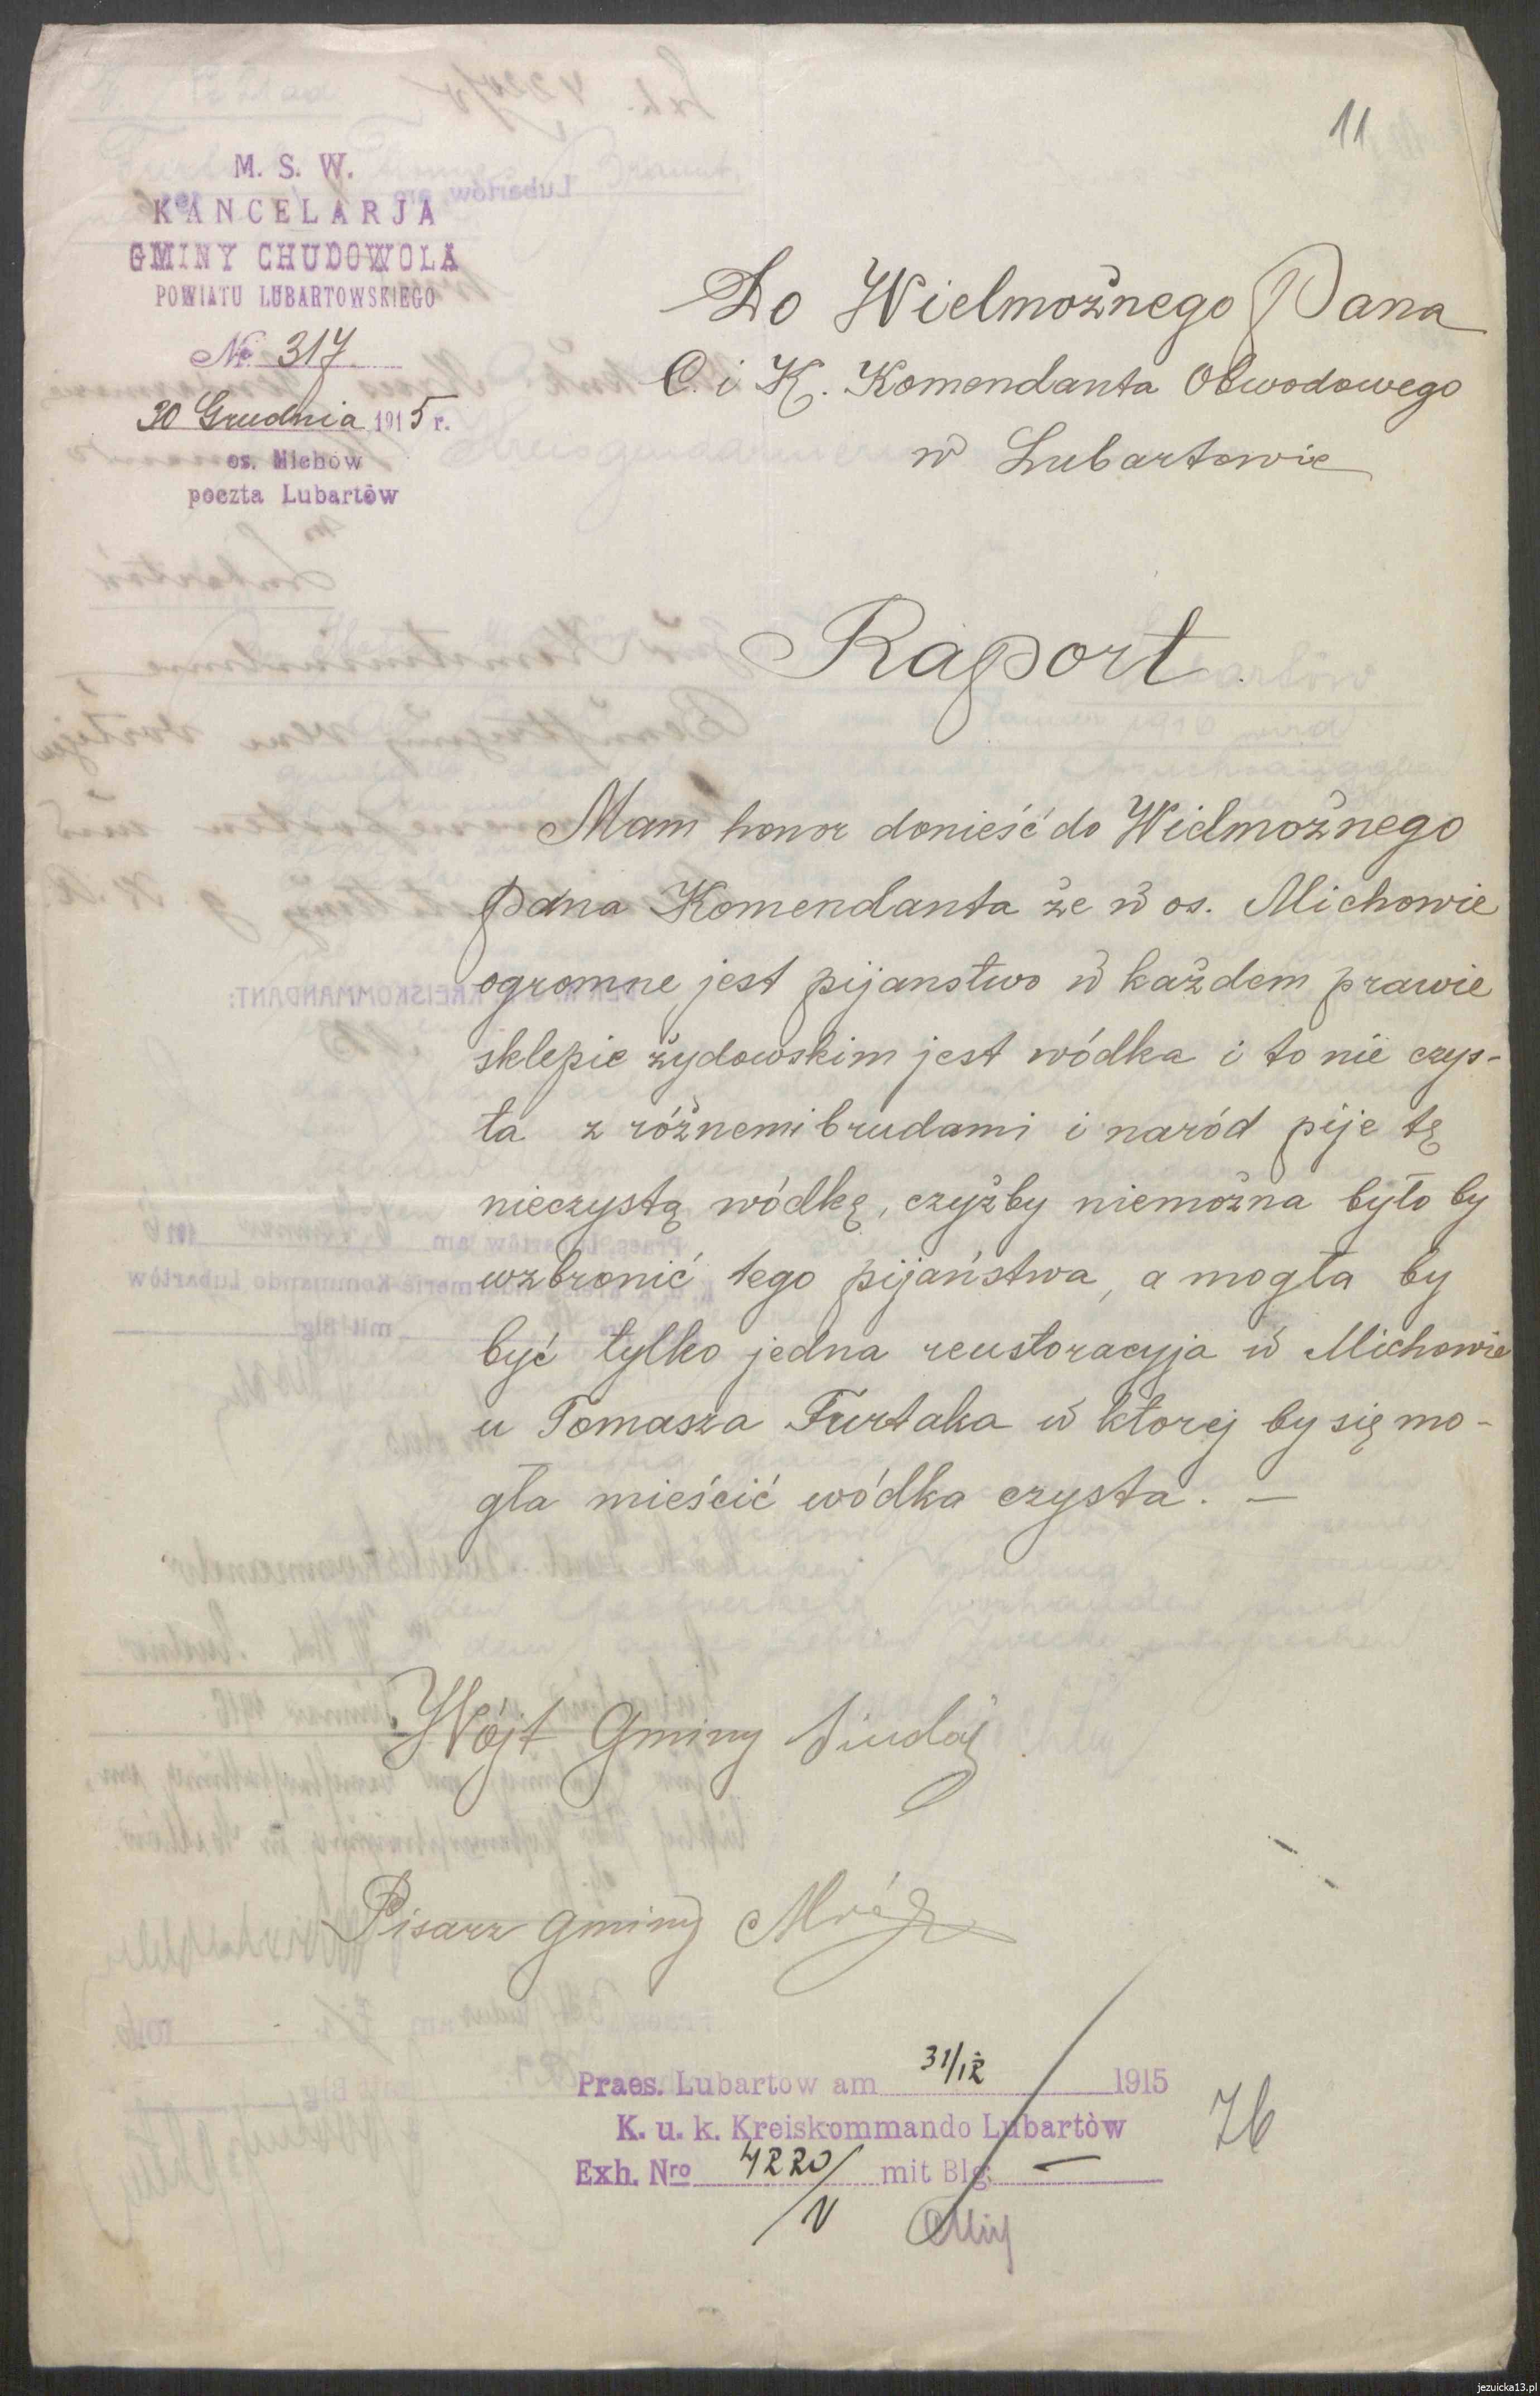 11
M. S. W.
KANCELARJA
GMINY CHUDOWOLA
POWIATU LUBARTOWSKIEGO
№ 317
30 Grudnia 1915 r.
os. Michów
poczta Lubartów
Do Wielmożnego Pana
C. i K. Komendanta Obwodowego
w Lubartowie
Raport.
Mam honor donieść do Wielmożnego
Pana Komendanta że w os. Michowie
ogromne jest pijanstwo w każdem prawie
sklepie żydowskim jest wódka i to nie czys-
ta z różnemi brudami i naród pije tę
nieczystą wódkę, czyżby niemożna było by
wzbronić tego pijaństwa, a mogła by
być tylko jedna reustoracyja w Michowie
u Tomasza Furtaka w ktorej by się mo-
gła mieścić wódka czysta. —
Wójt Gminy
Pisarz gminy Mróz
Praes. Lubartow am 31/12 1915
K. u. k. Kreiskommando Lubartòw
Exh. Nro 4220/V mit Blg. —
76
jezuicka13.pl